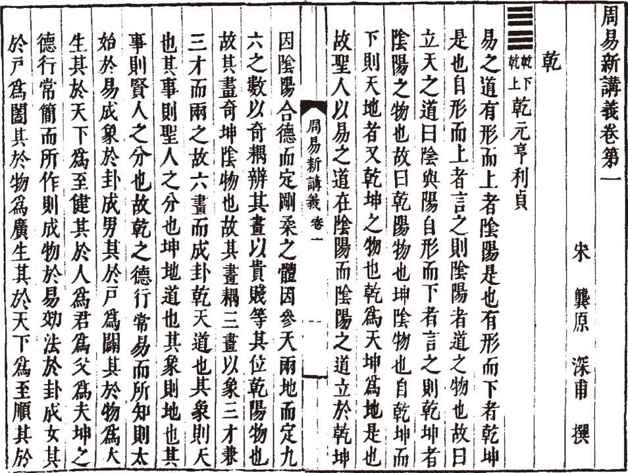 周易新講義卷第一
宋 龔原 深甫 撰
乾
乾下乾上 乾元亨利貞
易之道有形而上者陰陽是也有形而下者乾坤
是也自形而上者言之則陰陽者道之物也故曰
立天之道曰陰與陽自形而下者言之則乾坤者
陰陽之物也故曰乾陽物也坤陰物也自乾坤而
下則天地者又乾坤之物也乾為天坤為地是也
故聖人以易之道在陰陽而陰陽之道立於乾坤
周易新講義 卷一
因陰陽合德而定剛柔之體因參天兩地而定九
六之數以奇耦辨其畫以貴賤等其位乾陽物也
故其畫奇坤陰物也故其畫耦三畫以象三才兼
三才而兩之故六畫而成卦乾天道也其象則天
也其事則聖人之分也坤地道也其象則地也其
事則賢人之分也故乾之德行常易而所知則太
始於易成象於卦成男其於戶為闢其於物為大
生其於天下為至健其於人為君為父為夫坤之
德行常簡而所作則成物於易効法於卦成女其
於戶為闔其於物為廣生其於天下為至順其於